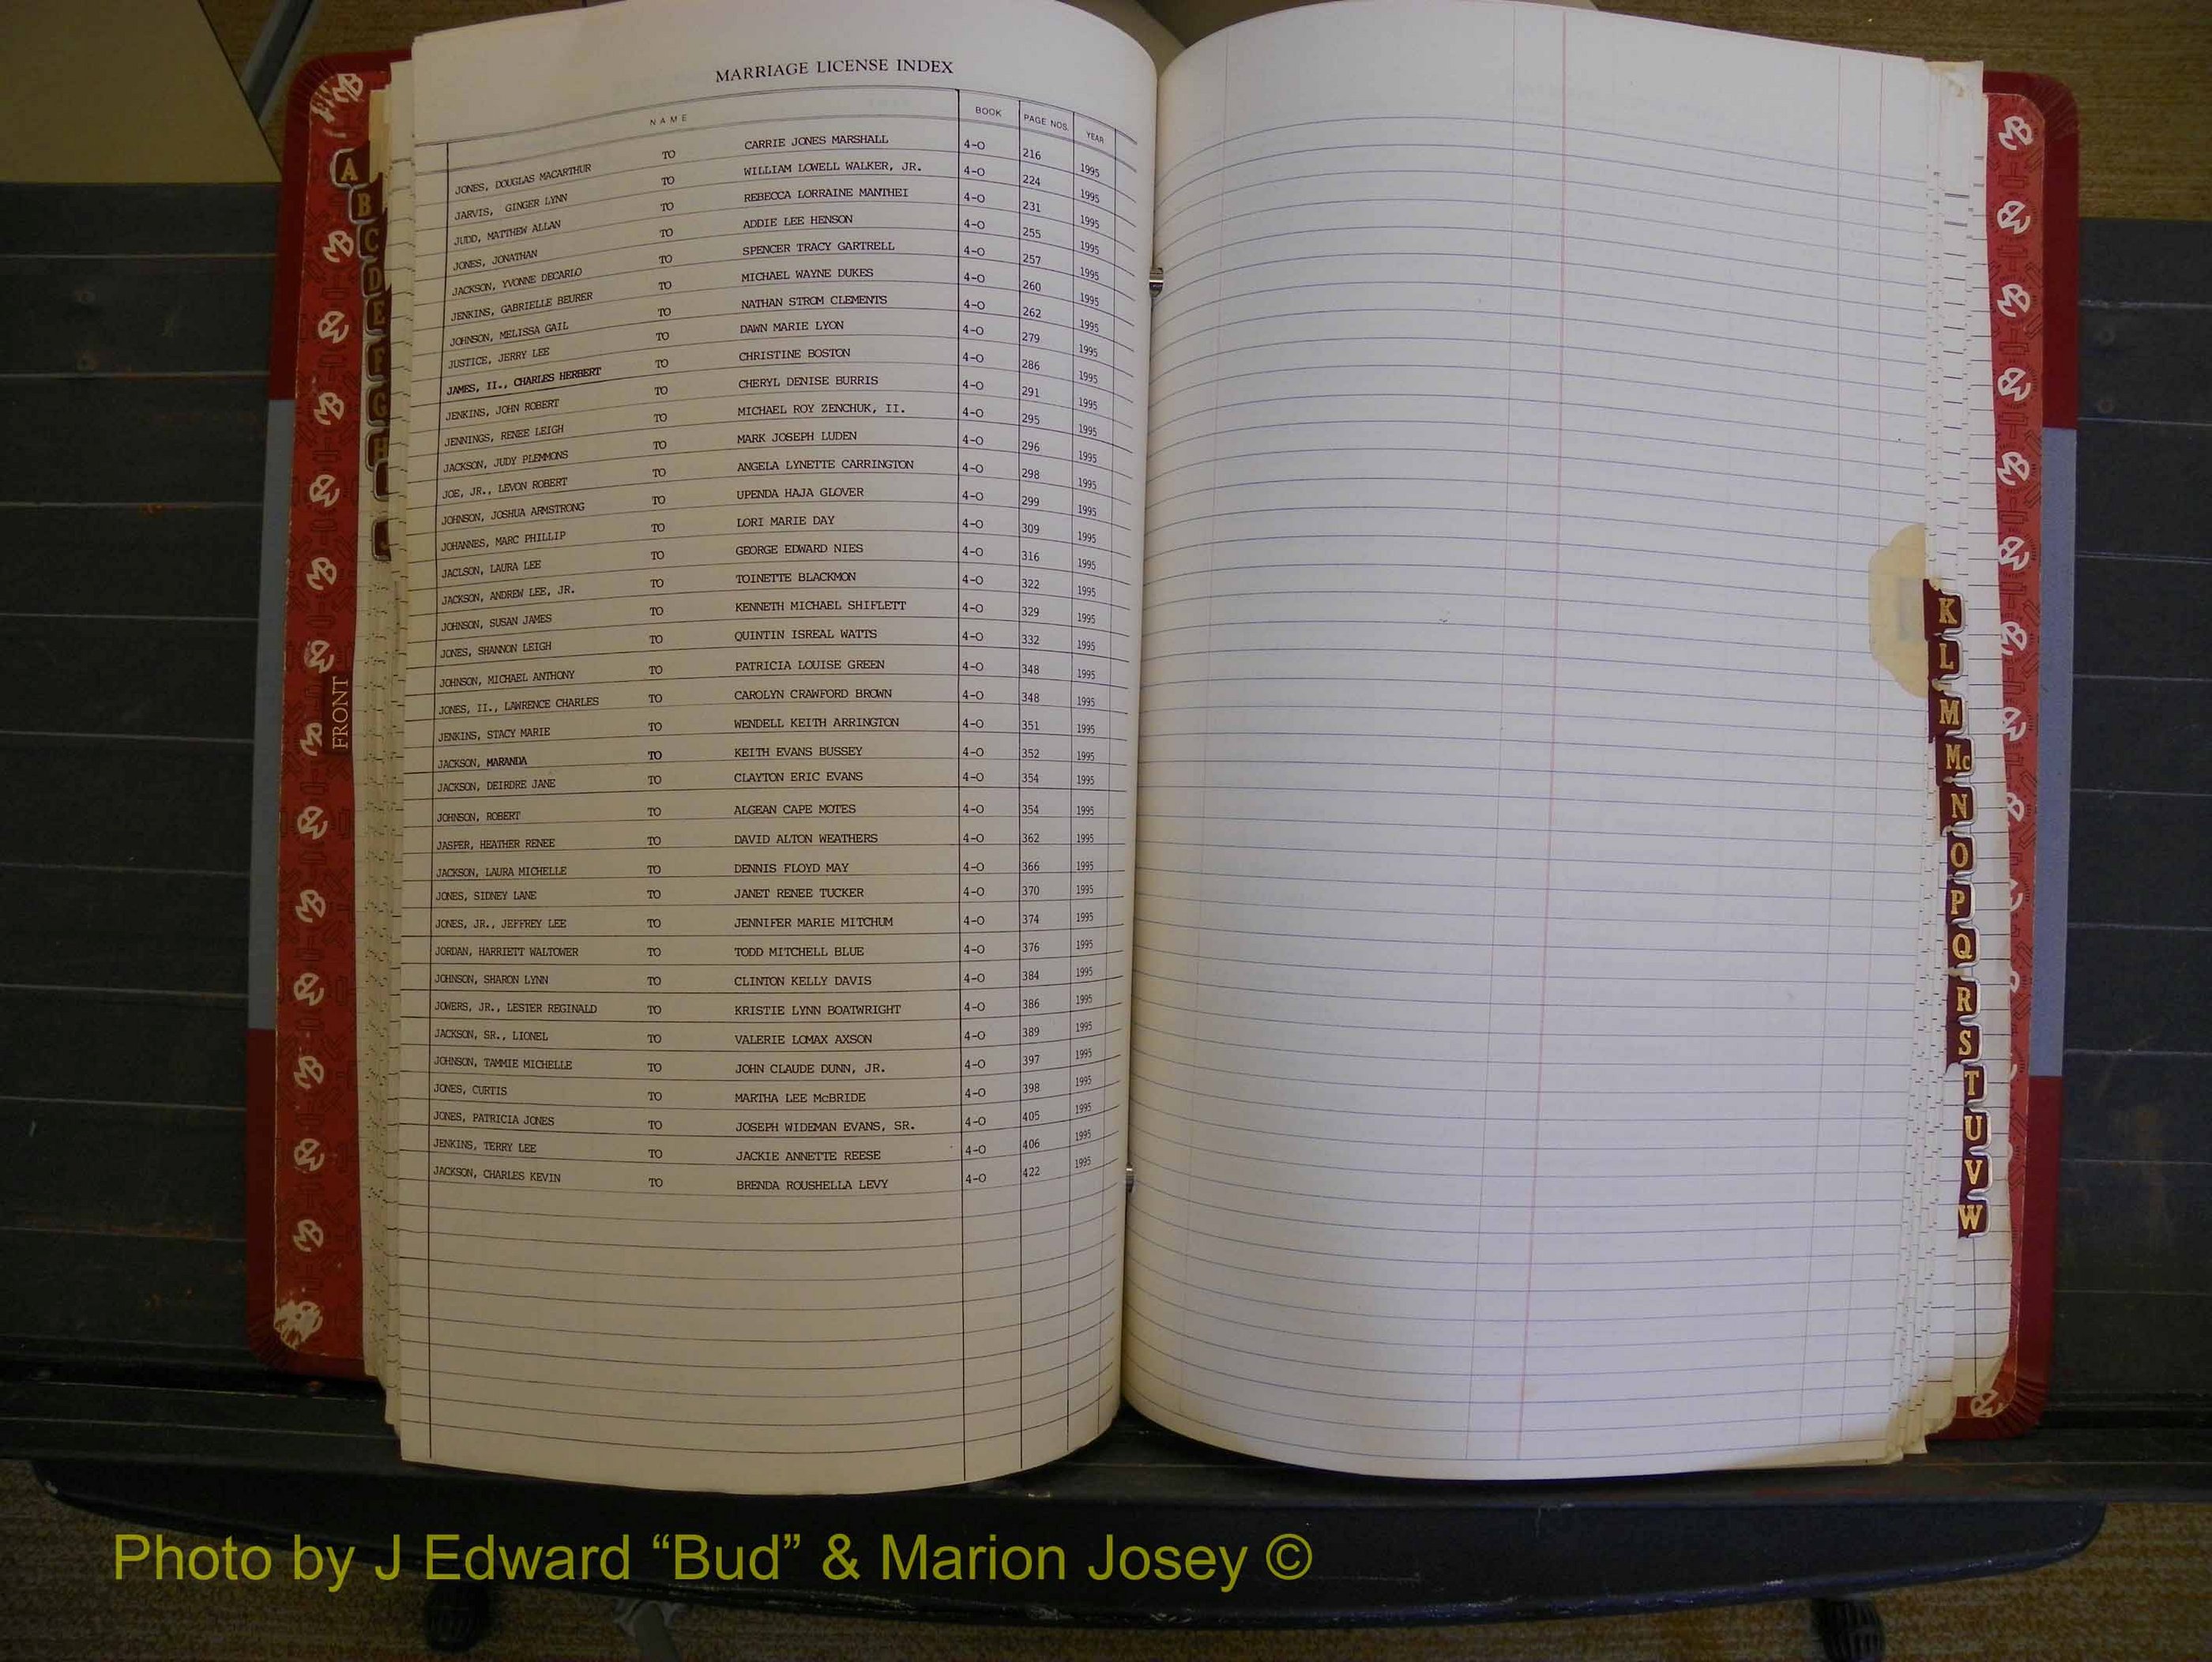 MARRIAGE LICENSE INDEX
NAME BOOK PAGE NOS. YEAR
JONES, DOUGLAS MACARTHUR TO CARRIE JONES MARSHALL 4-O 216 1995
JARVIS, GINGER LYNN TO WILLIAM LOWELL WALKER, JR. 4-O 224 1995
JUDD, MATTHEW ALLAN TO REBECCA LORRAINE MANTHEI 4-O 231 1995
JONES, JONATHAN TO ADDIE LEE HENSON 4-O 255 1995
JACKSON, YVONNE DECARLO TO SPENCER TRACY GARTRELL 4-O 257 1995
JENKINS, GABRIELLE BEURER TO MICHAEL WAYNE DUKES 4-O 260 1995
JOHNSON, MELISSA GAIL TO NATHAN STROM CLEMENTS 4-O 262 1995
JUSTICE, JERRY LEE TO DAWN MARIE LYON 4-O 279 1995
JAMES, II., CHARLES HERBERT TO CHRISTINE BOSTON 4-O 286 1995
JENKINS, JOHN ROBERT TO CHERYL DENISE BURRIS 4-O 291 1995
JENNINGS, RENEE LEIGH TO MICHAEL ROY ZENCHUK, II. 4-O 295 1995
JACKSON, JUDY PLEMMONS TO MARK JOSEPH LUDEN 4-O 296 1995
JOE, JR., LEVON ROBERT TO ANGELA LYNETTE CARRINGTON 4-O 298 1995
JOHNSON, JOSHUA ARMSTRONG TO UPENDA HAJA GLOVER 4-O 299 1995
JOHANNES, MARC PHILLIP TO LORI MARIE DAY 4-O 309 1995
JACLSON, LAURA LEE TO GEORGE EDWARD NIES 4-O 316 1995
JACKSON, ANDREW LEE, JR. TO TOINETTE BLACKMON 4-O 322 1995
JOHNSON, SUSAN JAMES TO KENNETH MICHAEL SHIFLETT 4-O 329 1995
JONES, SHANNON LEIGH TO QUINTIN ISREAL WATTS 4-O 332 1995
JOHNSON, MICHAEL ANTHONY TO PATRICIA LOUISE GREEN 4-O 348 1995
JONES, II., LAWRENCE CHARLES TO CAROLYN CRAWFORD BROWN 4-O 348 1995
JENKINS, STACY MARIE TO WENDELL KEITH ARRINGTON 4-O 351 1995
JACKSON, MARANDA TO KEITH EVANS BUSSEY 4-O 352 1995
JACKSON, DEIRDRE JANE TO CLAYTON ERIC EVANS 4-O 354 1995
JOHNSON, ROBERT TO ALGEAN CAPE MOTES 4-O 354 1995
JASPER, HEATHER RENEE TO DAVID ALTON WEATHERS 4-O 362 1995
JACKSON, LAURA MICHELLE TO DENNIS FLOYD MAY 4-O 366 1995
JONES, SIDNEY LANE TO JANET RENEE TUCKER 4-O 370 1995
JONES, JR., JEFFREY LEE TO JENNIFER MARIE MITCHUM 4-O 374 1995
JORDAN, HARRIETT WALTOWER TO TODD MITCHELL BLUE 4-O 376 1995
JOHNSON, SHARON LYNN TO CLINTON KELLY DAVIS 4-O 384 1995
JOWERS, JR., LESTER REGINALD TO KRISTIE LYNN BOATWRIGHT 4-O 386 1995
JACKSON, SR., LIONEL TO VALERIE LOMAX AXSON 4-O 389 1995
JOHNSON, TAMMIE MICHELLE TO JOHN CLAUDE DUNN, JR. 4-O 397 1995
JONES, CURTIS TO MARTHA LEE McBRIDE 4-O 398 1995
JONES, PATRICIA JONES TO JOSEPH WIDEMAN EVANS, SR. 4-O 405 1995
JENKINS, TERRY LEE TO JACKIE ANNETTE REESE 4-O 406 1995
JACKSON, CHARLES KEVIN TO BRENDA ROUSHELLA LEVY 4-O 422 1995
A
B
C
D
E
F
G
H
FRONT
K
L
M
Mc
N
O
P
Q
R
S
T
U
V
W
Photo by J Edward “Bud” & Marion Josey ©